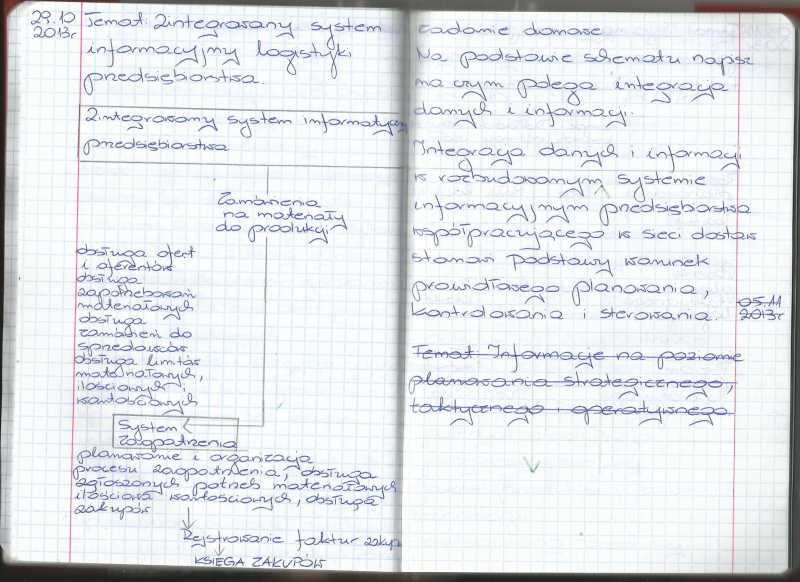 29.10
2013r
Temat: Zintegrowany system
informacyjny logistyki
przedsiębiorstwa.
Zintegrowany system informatyczny
przedsiębiorstwa
Zamówienia
na materiały
do produkcji
obsługa ofert
i oferentów
obsługa
zapotrzebowań
materiałowych
obsługa
zamówień do
sprzedawców
obsługa limitów
materiałowych,
ilościowych i
wartościowych
System
Zaopatrzenia
planowanie i organizacja
procesu zaopatrzenia, obsługa
zgłoszonych potrzeb materiałowych
ilościowa wartościowych, obsługa
zakupów
Rejstrowanie faktur zakup
KSIĘGA ZAKUPÓW
zadanie domowe
Na podstawie schematu napisz
na czym polega integracja
danych i informacji.
Integracja danych i informacji
w rozbudowanym systemie
informacyjnym przedsiębiorstwa
współpracującego w sieci dostaw
stanowi podstawy warunek
prawidłowego planowania,
kontrolowania i sterowania.
05.11
2013r
Temat: Informacje na poziomie
planowania strategicznego,
taktycznego i operatywnego